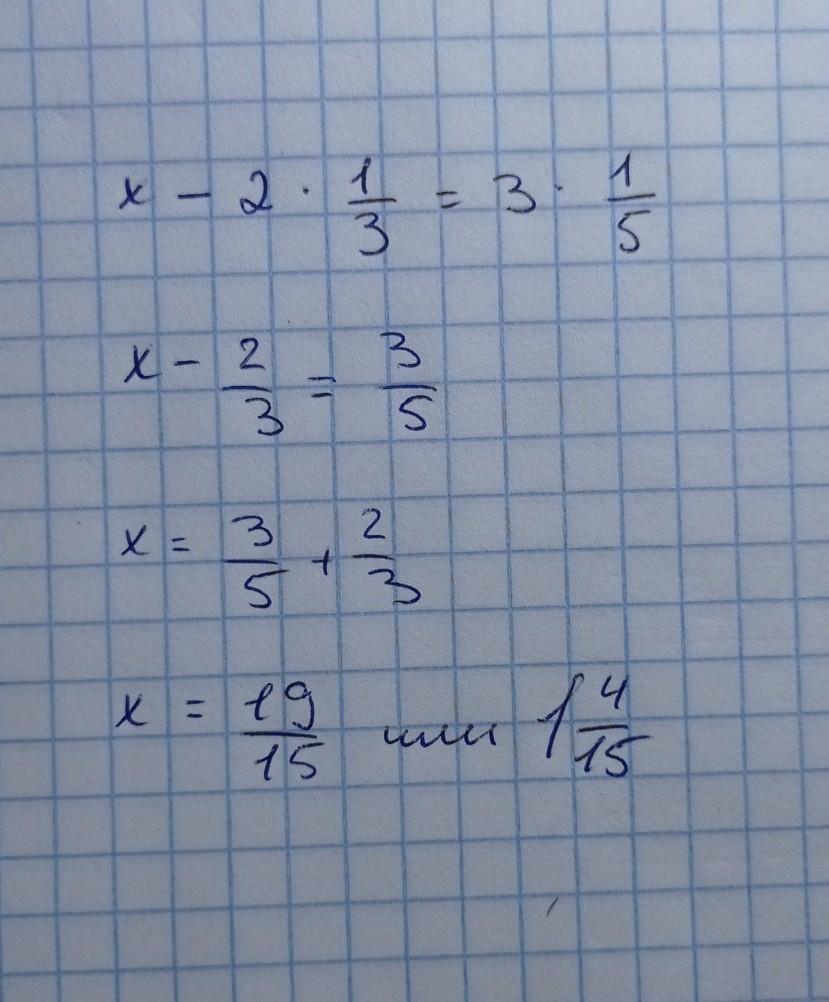 x - 2 · 1/3 = 3 · 1/5
x - 2/3 = 3/5
x = 3/5 + 2/3
x = 19/15 или 1 4/15